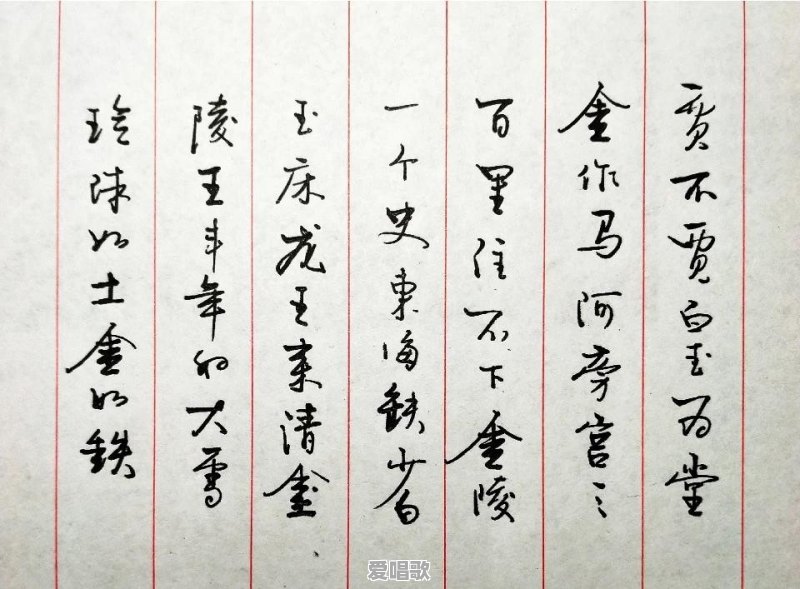 贾不贾白玉为堂
金作马阿房宫三
百里住不下金陵
一个史东海缺少白
玉床龙王来请金
陵王丰年好大雪
珍珠如土金如铁
爱唱歌